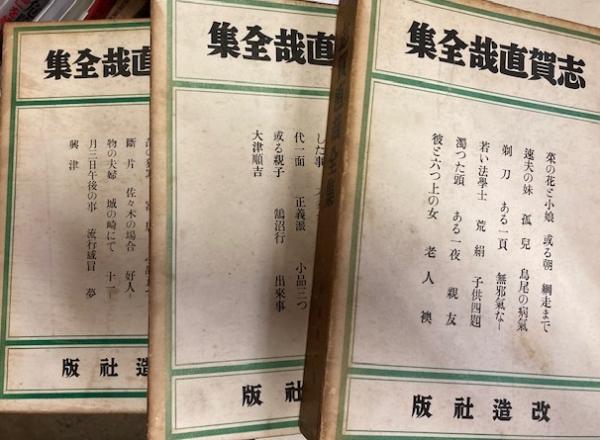 志賀直哉全集
菜の花と小娘 或る朝 網走まで
速夫の妹 孤兒 鳥尾の病氣
剃刀 ある一頁 無邪氣な
若い法學士 荒絹 子供四題
濁つた頭 ある一夜 親友
彼と六つ上の女 老人 襖
改造社版
直哉全集
した事
代一面 正義派 小品三つ
或る親子 鵠沼行 出來事
大津順吉
造社版
直哉全集
斷片 佐々木の場合 好人
物の夫婦 城の崎にて 十一
月三日午後の事 流行感冒 夢
興津
造社版